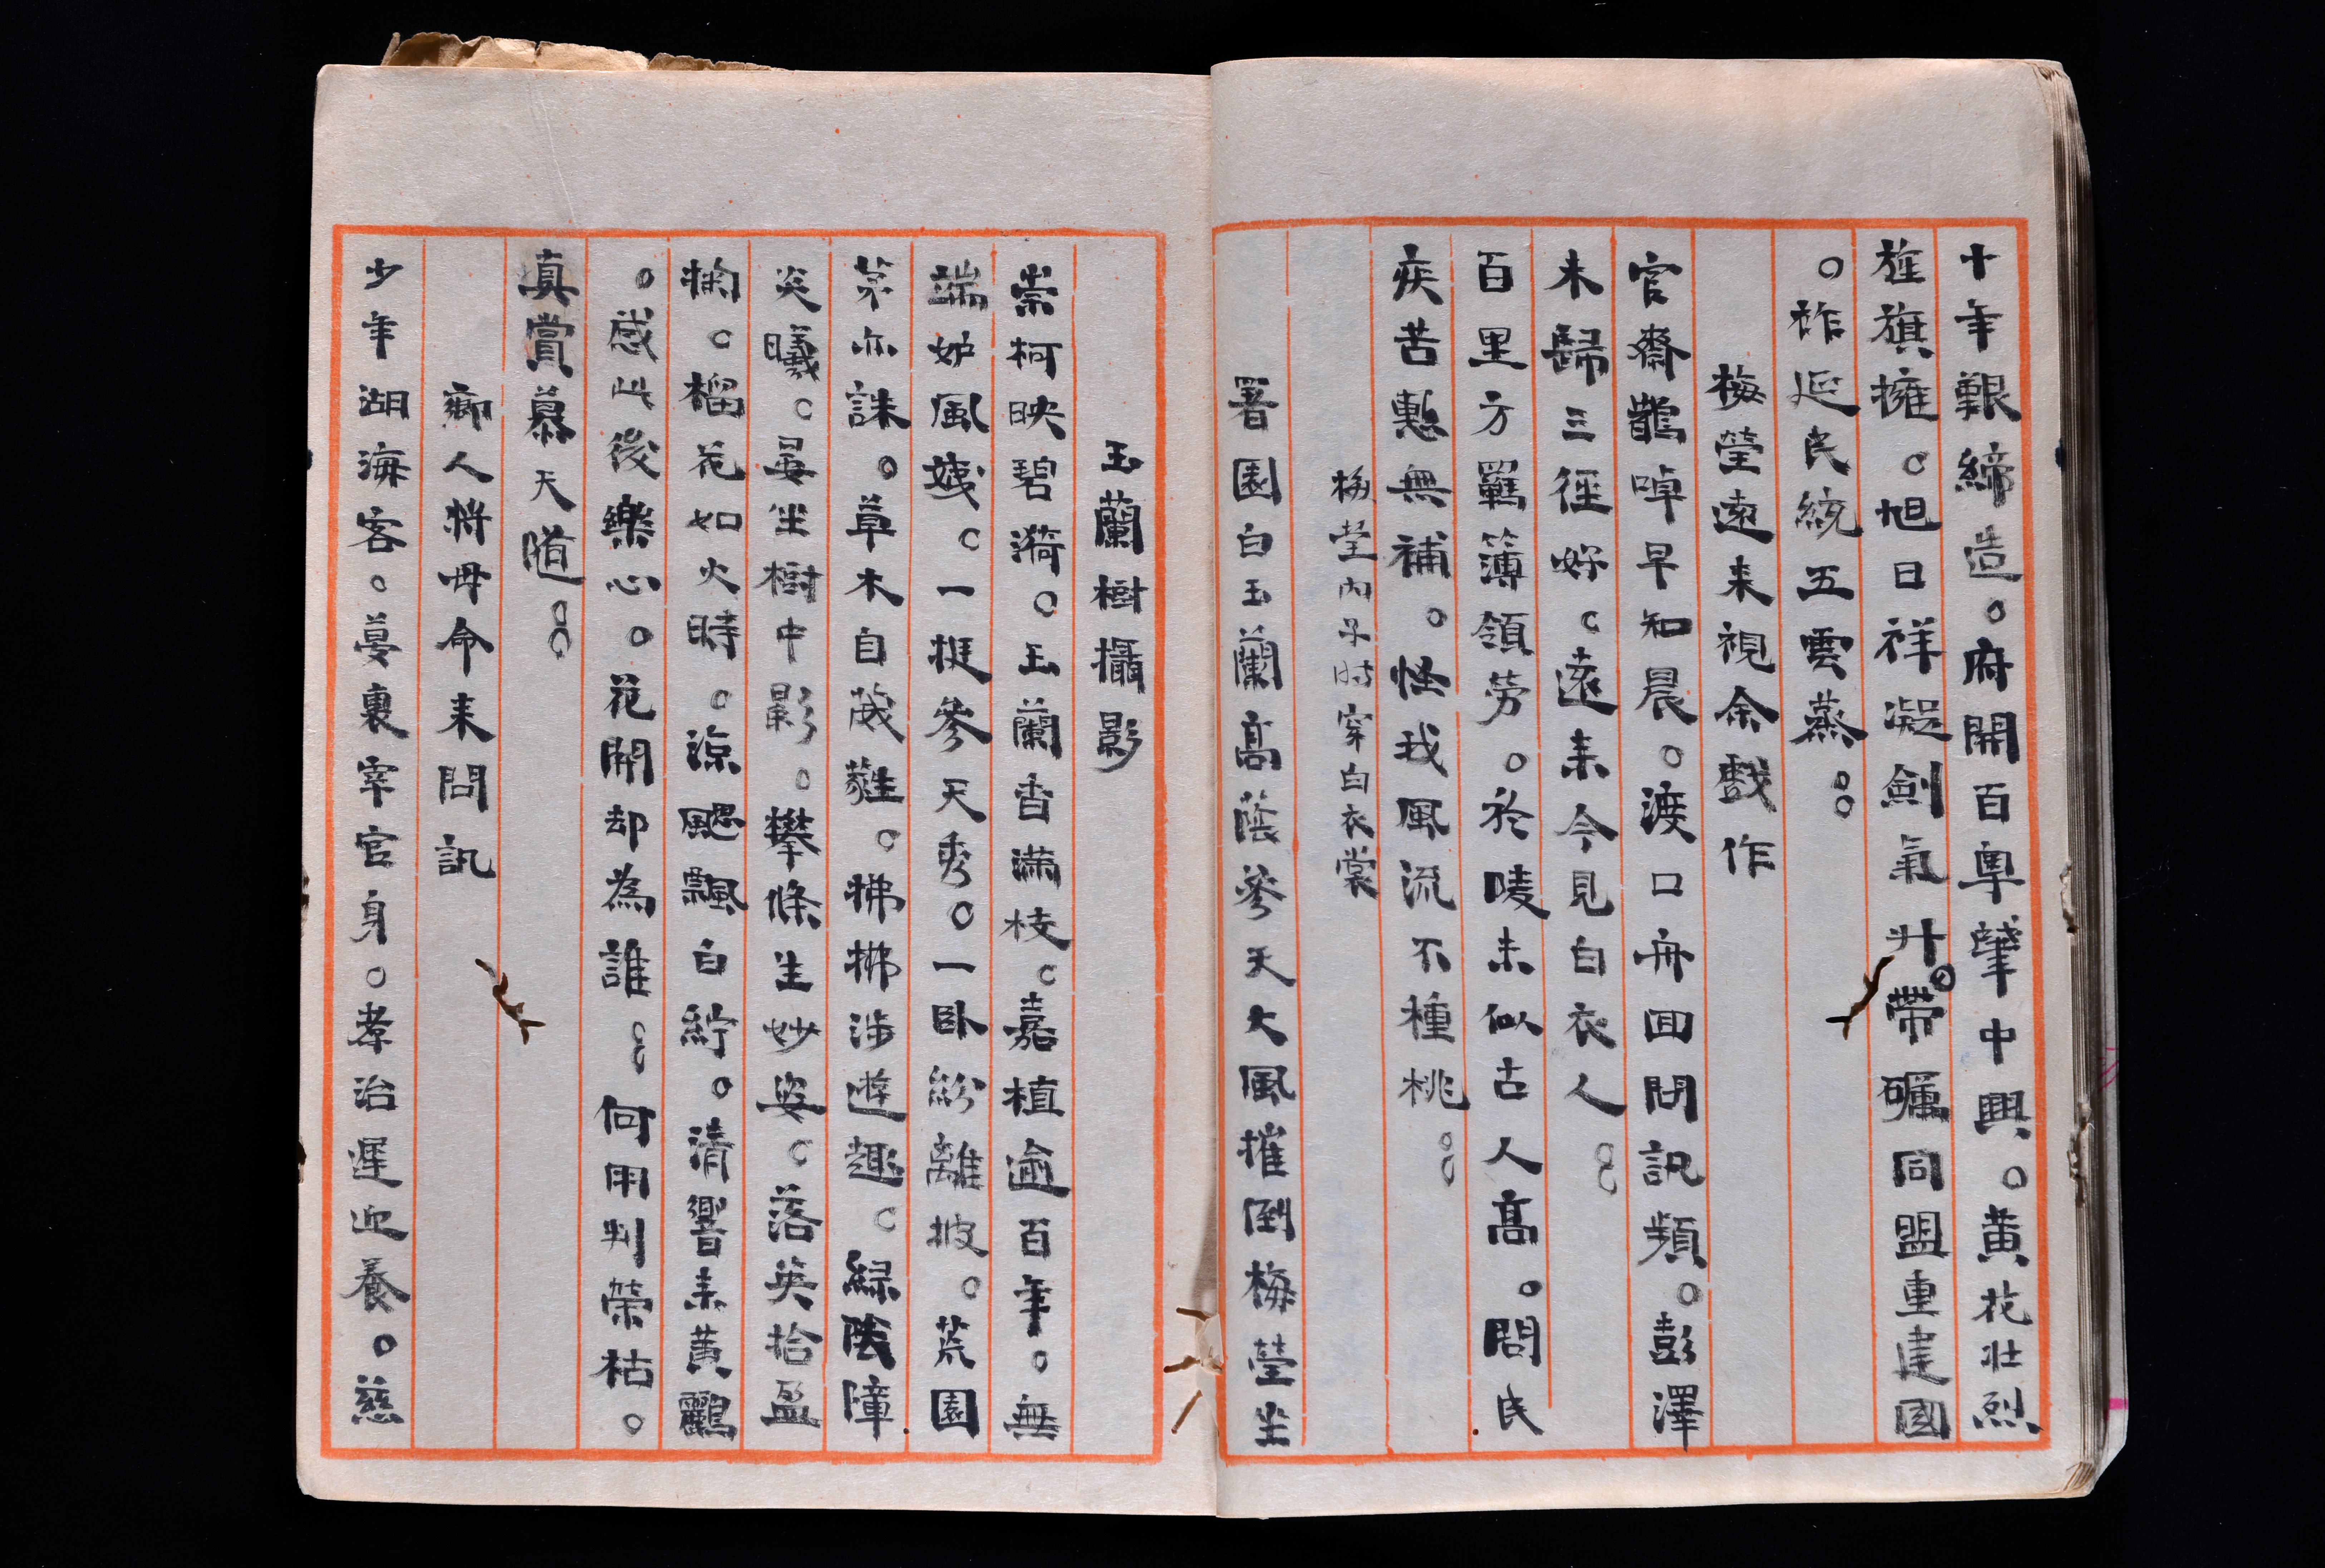 十年艱締造。府開百粵肇中興。黃花壯烈
旌旗擁。旭日祥凝劍氣升。帶礪同盟重建國
。祚延民統五雲蒸。。
梅瑩遠來視余戲作
官齋鵲噪早知晨。渡口舟回問訊頻。彭澤
未歸三徑好。遠來今見白衣人。。
百里方羈簿領勞。於嘜未似古人高。問民
疾苦慙無補。怪我風流不種桃。。
梅瑩內子時穿白衣裳
署園白玉蘭高蔭參天大風摧倒梅瑩坐
玉蘭樹攝影
崇柯映碧漪。玉蘭香滿枝。嘉植逾百年。無
端妒風姨。一挺參天秀。一卧紛離披。荒園
茅亦誅。草木自葳蕤。拂拂涉遊趣。綠陰障
炎曦。晏坐樹中影。攀條生妙姿。落英拾盈
掬。榴花如火時。涼颸飄白紵。清響來黃鸝
。感此後樂心。花開却為誰。。何用判榮枯。
真賞慕天隨。。
鄉人將毋命來問訊
少年湖海客。蔓裏宰官身。孝治遲迎養。慈